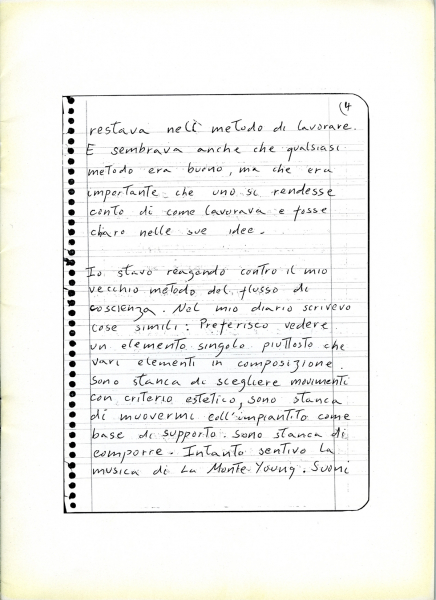 4
restava nell metodo di lavorare.
E sembrava anche che qualsiasi
metodo era buono, ma che era
importante che uno si rendesse
conto di come lavorava e fosse
chiaro nelle sue idee.
Io stavo reagendo contro il mio
vecchio metodo del flusso di
coscienza. Nel mio diario scrivevo
cose simili: Preferisco vedere
un elemento singolo piuttosto che
vari elementi in composizione.
Sono stanca di scegliere movimenti
con criterio estetico, sono stanca
di muovermi coll'impiantito come
base di supporto. Sono stanca di
comporre. Intanto sentivo la
musica di La Monte Young. Suoni